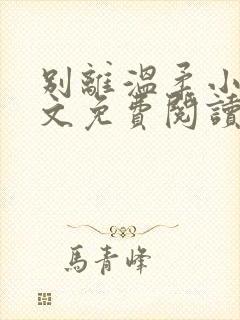 別離溫柔小
文免費閱讀
馬青峰